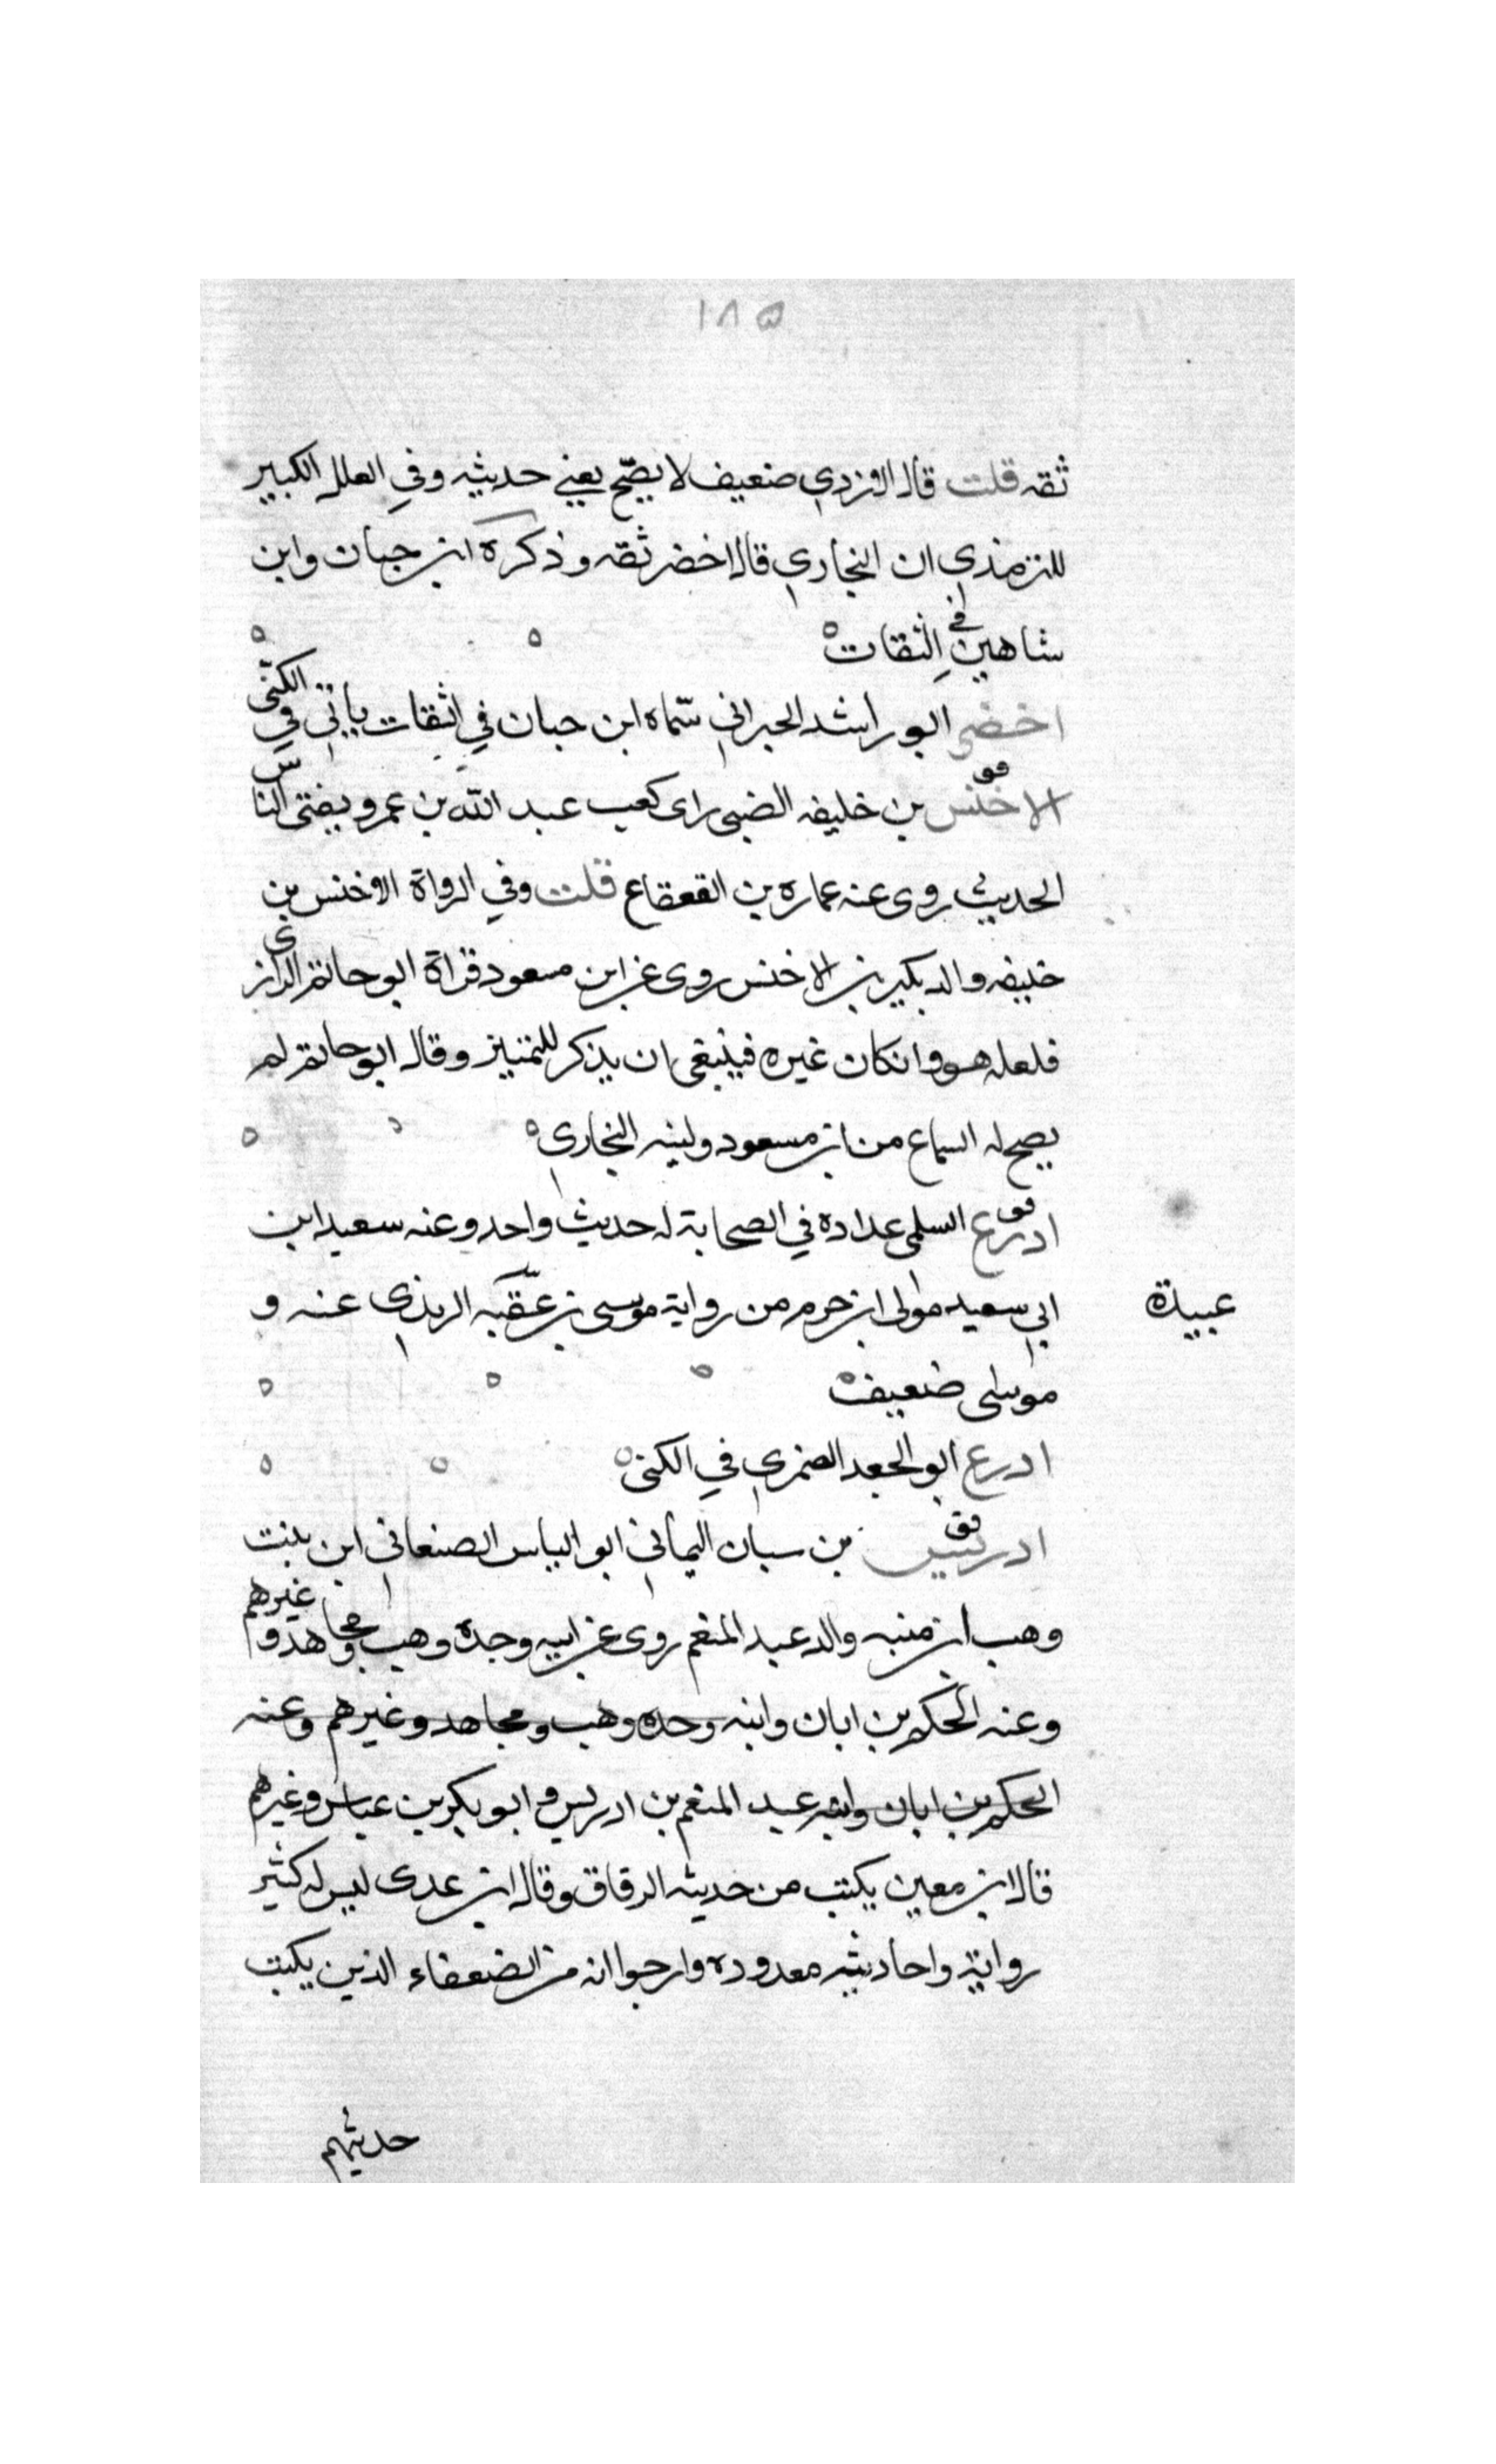 ١٨٥
ثقه قلت قال الازدي ضعيف لا يصح يعني حديثه وفي العلل الكبير
للترمذي ان البخاري قال اخضر ثقه وذكره ابن حبان وابن
شاهين في الثقات
اخضر ابو راشد الحبراني سماه ابن حبان في الثقات ياتي في الكنى
الاخنس بن خليفه الضبي راى كعب عبد الله بن عمرو يفتى الناس
الحديث روى عنه عماره بن القعقاع قلت وفي الرواة الاخنس بن
خليفه والد بكير بن الاخنس روى عن ابن مسعود قراة ابو حاتم الرازى
فلعله هو وانكان غيره فينبغى ان يذكر للتمييز وقال ابو حاتم لم
يصح له السماع من ابن مسعود ولينه البخاري
ق
ادرع السلمى عداده في الصحابة له حديث واحد وعنه سعيد ابن
ابي سعيد مولى ابن حرم من رواية موسى بن عقبه الربذي عنه و
عبيدة
موسى ضعيف
ادرع ابو الجعد الضمري في الكنى
فق
ادريس بن سبان اليماني ابو الياس الصنعاني ابن بنت
وهب ابن منبه والد عبد المنعم روى عن ابيه وجده وهب ومجاهد وغيرهم
وعنه الحكم بن ابان وابنه وجده وهب ومجاهد وغيرهم وعنه
الحكم بن ابان وابنه عبد المنعم بن ادريس وابو بكر بن عياش وغيرهم
قال ابن معين يكتب من حديثه الرقاق وقال ابن عدى ليس له كثير
رواية واحاديثه معدوده وارجوا انه من الضعفاء الذين يكتب
حديثهم